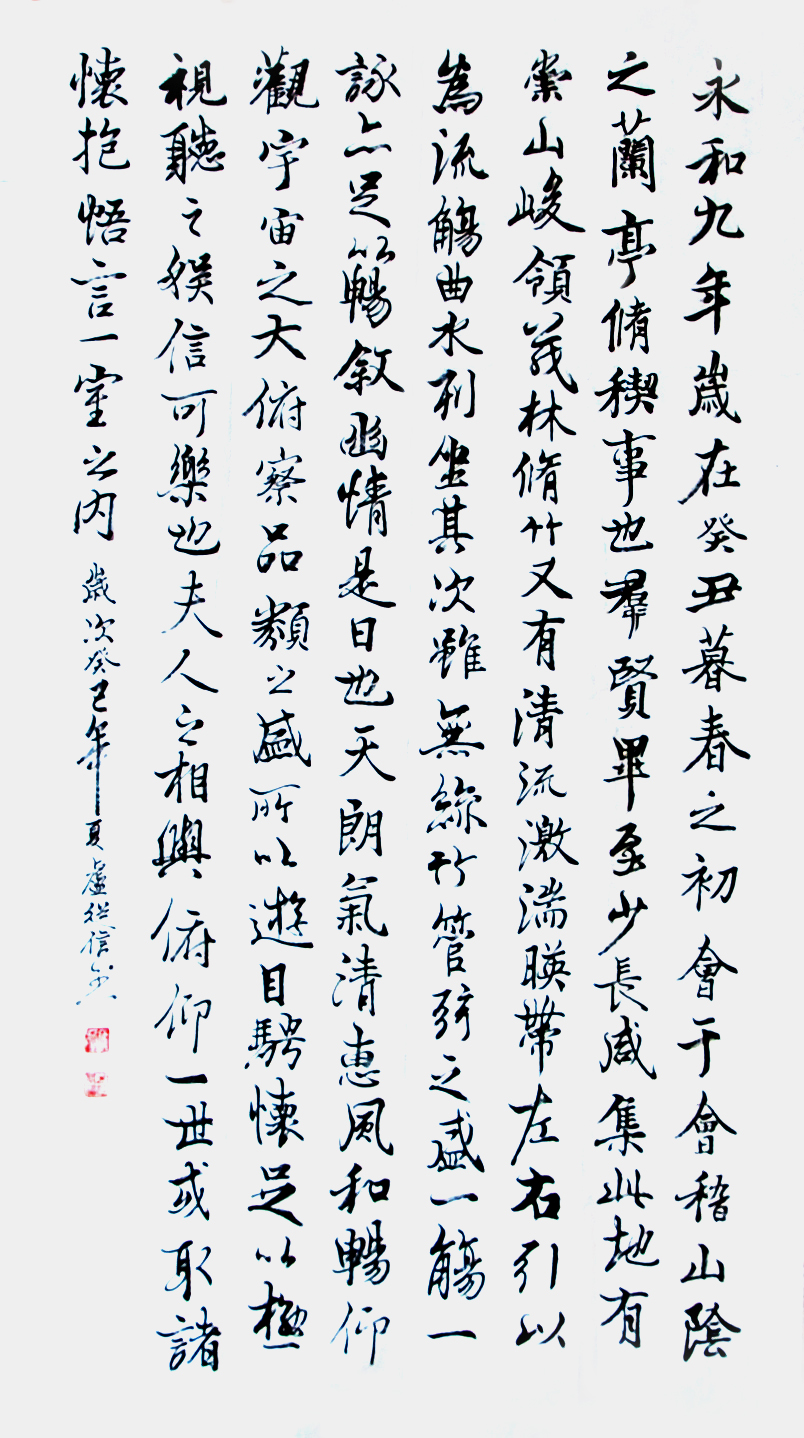 永和九年歲在癸丑暮春之初會于會稽山陰
之蘭亭脩稧事也羣賢畢至少長咸集此地有
崇山峻領茂林脩竹又有清流激湍暎帶左右引以
為流觴曲水列坐其次雖無絲竹管弦之盛一觴一
詠亦足以暢敘幽情是日也天朗氣清惠風和暢仰
觀宇宙之大俯察品類之盛所以遊目騁懷足以極
視聽之娛信可樂也夫人之相與俯仰一世或取諸
懷抱悟言一室之内 歲次癸巳年夏盧信